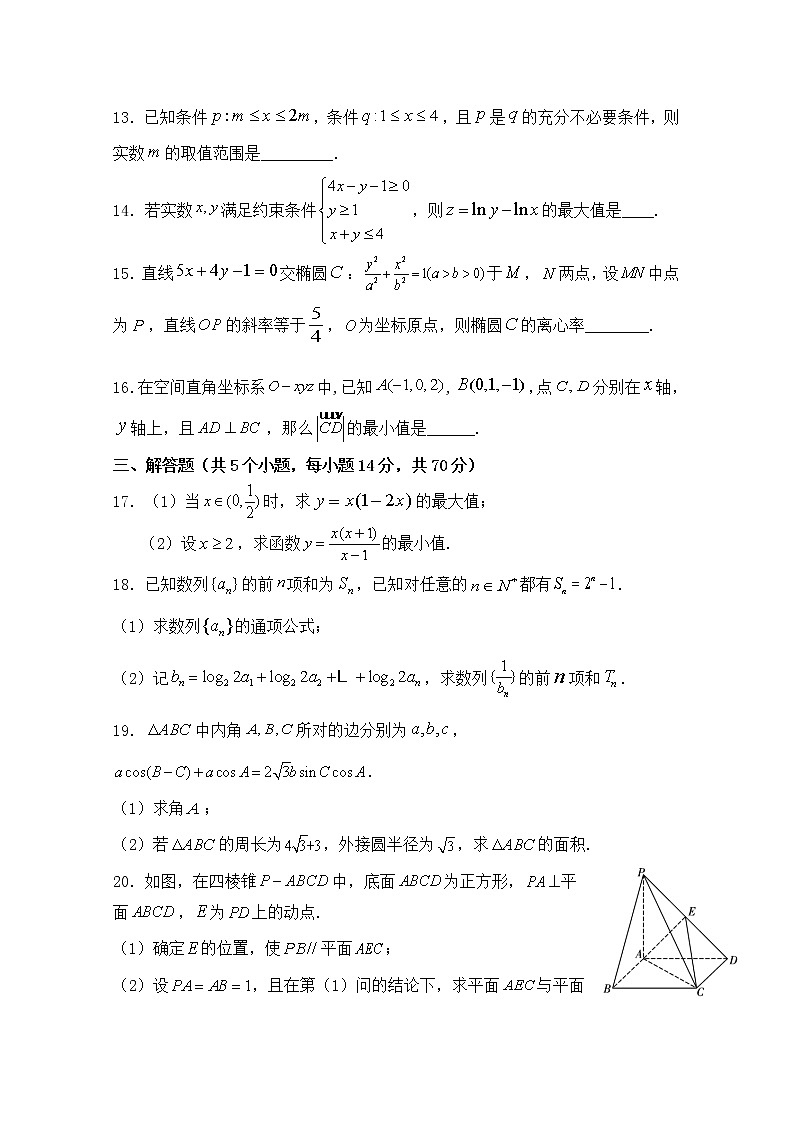 13. 已知条件 p : m ≤ x ≤ 2m, 条件 q : 1 ≤ x ≤ 4, 且 p 是 q 的充分不必要条件, 则
实数 m 的取值范围是_________.
14. 若实数 x, y 满足约束条件 { 4x − y − 1 ≥ 0
y ≥ 1
x + y ≤ 4 , 则 z = ln y − ln x 的最大值是____.
15. 直线 5x + 4y − 1 = 0 交椭圆 C : y²/a² + x²/b² = 1(a > b > 0) 于 M , N 两点, 设 MN 中点
为 P , 直线 OP 的斜率等于 5/4 , O 为坐标原点, 则椭圆 C 的离心率________.
16.在空间直角坐标系 O − xyz 中, 已知 A(−1, 0, 2), B(0,1,−1) ,点 C, D 分别在 x 轴,
y 轴上, 且 AD ⊥ BC , 那么 |CD| 的最小值是______.
三、解答题（共 5 个小题, 每小题 14 分, 共 70 分）
17. （1）当 x ∈ (0, 1/2) 时, 求 y = x(1 − 2x) 的最大值;
（2）设 x ≥ 2 , 求函数 y = x(x + 1)/(x − 1) 的最小值.
18. 已知数列 {aₙ} 的前 n 项和为 Sₙ , 已知对任意的 n ∈ N* 都有 Sₙ = 2ⁿ − 1 .
（1）求数列 {aₙ} 的通项公式;
（2）记 bₙ = log₂ 2a₁ + log₂ 2a₂ + L + log₂ 2aₙ , 求数列 {1/bₙ} 的前 n 项和 Tₙ .
19. △ABC 中内角 A, B, C 所对的边分别为 a, b, c ,
a cos(B − C) + a cos A = 2√3b sin C cos A.
（1）求角 A ;
（2）若 △ABC 的周长为 4√3+3, 外接圆半径为 √3 , 求 △ABC 的面积.
20. 如图, 在四棱锥 P − ABCD 中, 底面 ABCD 为正方形, PA ⊥平
面 ABCD , E 为 PD 上的动点.
（1）确定 E 的位置, 使 PB// 平面 AEC ;
（2）设 PA = AB = 1, 且在第（1）问的结论下, 求平面 AEC 与平面
P
E
A
D
B
C